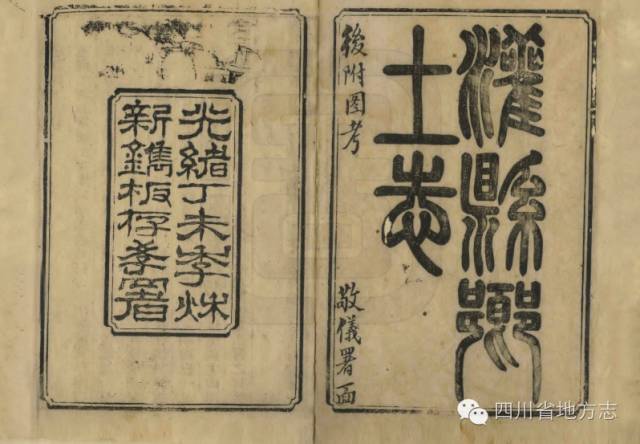 灌縣鄉
土志
後附图考
敬儀署面
光緒丁未季秋
新鐫板存斈署
四川省地方志